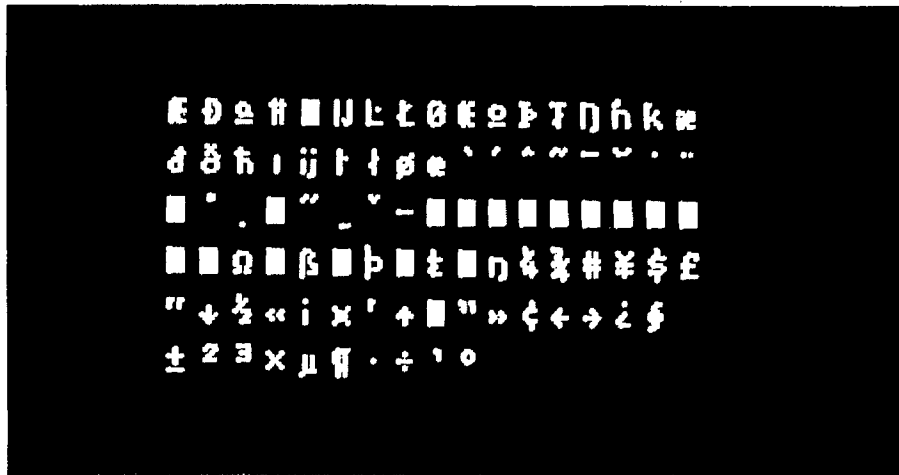 Æ Đ ª Ħ ■ IJ Ŀ Ł Ø Œ º Þ Ŧ Ŋ ŉ ĸ æ
đ ð ħ ı ij ŀ ł ø œ ` ´ ^ ~ ¯ ˘ ˙ ¨
■ ˚ ¸ ■ ˝ ˛ ˇ ― ■ ■ ■ ■ ■ ■ ■ ■ ■
■ ■ Ω ■ ß ■ þ ■ ŧ ■ ŋ ¼ ¾ # ¥ $ £
“ ↓ ½ « ¡ ¤ ‘ ↑ ■ ” » ¢ ← → ¿ §
± ² ³ × µ ¶ · ÷ ’ °